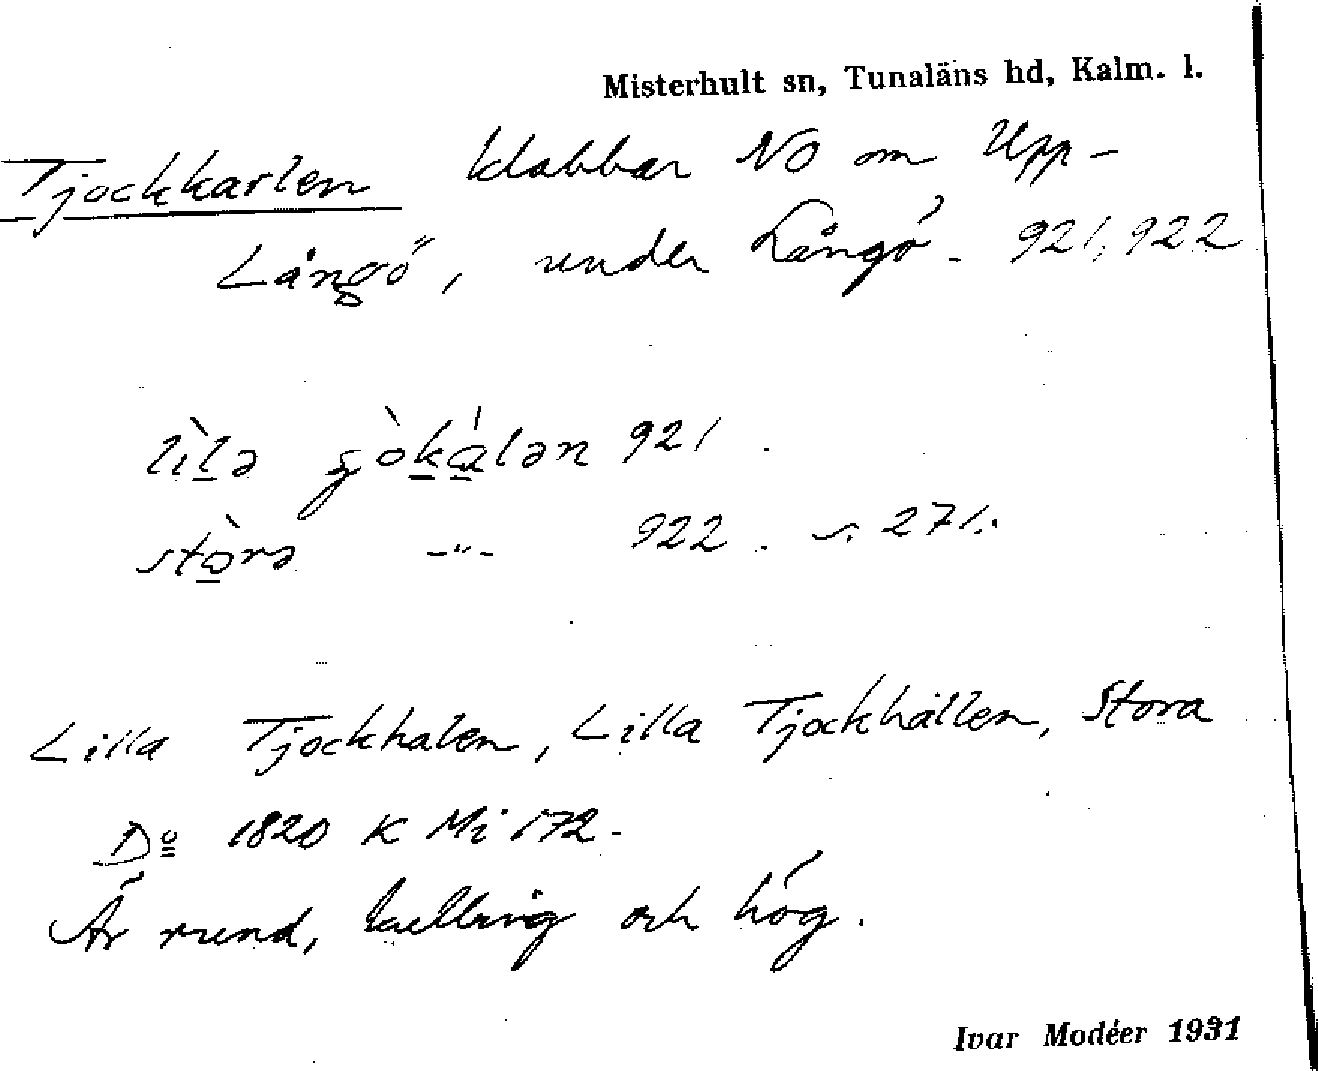 Misterhult sn, Tunaläns hd, Kalm. l.
Tjockkarlen klabbar NO om Upp-
Långö, under Långö. 921, 922
lìlə ʒòkálən 921.
stòrə -"- 922. s. 271.
Lilla Tjockhalen, Lilla Tjockhällen, Stora
Do 1820 K Mi 172.
Är rund, kullrig och hög.
Ivar Modéer 1931